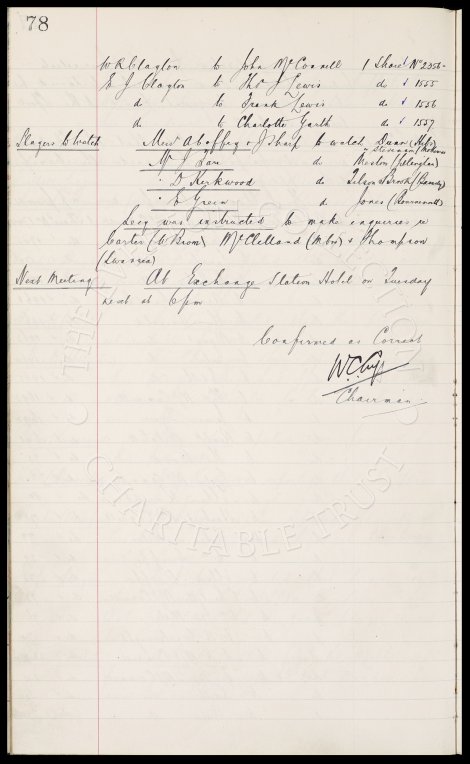 78
W R Clayton to John McConnell 1 Share No 2356
E J Clayton to Thos J Lewis do " 1555
do to Frank Lewis do " 1556
do to Charlotte Garth do " 1557
Players to Watch Messrs A Coffey & J Sharp to watch Duan (Hibs)
& Steinman (Motherwell)
Mr J Tarr do Weston (Islington)
" D Kirkwood do Tilson & Brook (Barnsley)
" E Green do Jones
Secy was instructed to make enquiries re
Carter (W Brom) McClelland (Mbro) & Thompson
(Swansea)
Next Meeting At Exchange Station Hotel on Tuesday
next at 6 pm
Confirmed as Correct
W.C. Cuff
Chairman
CHARITABLE TRUST